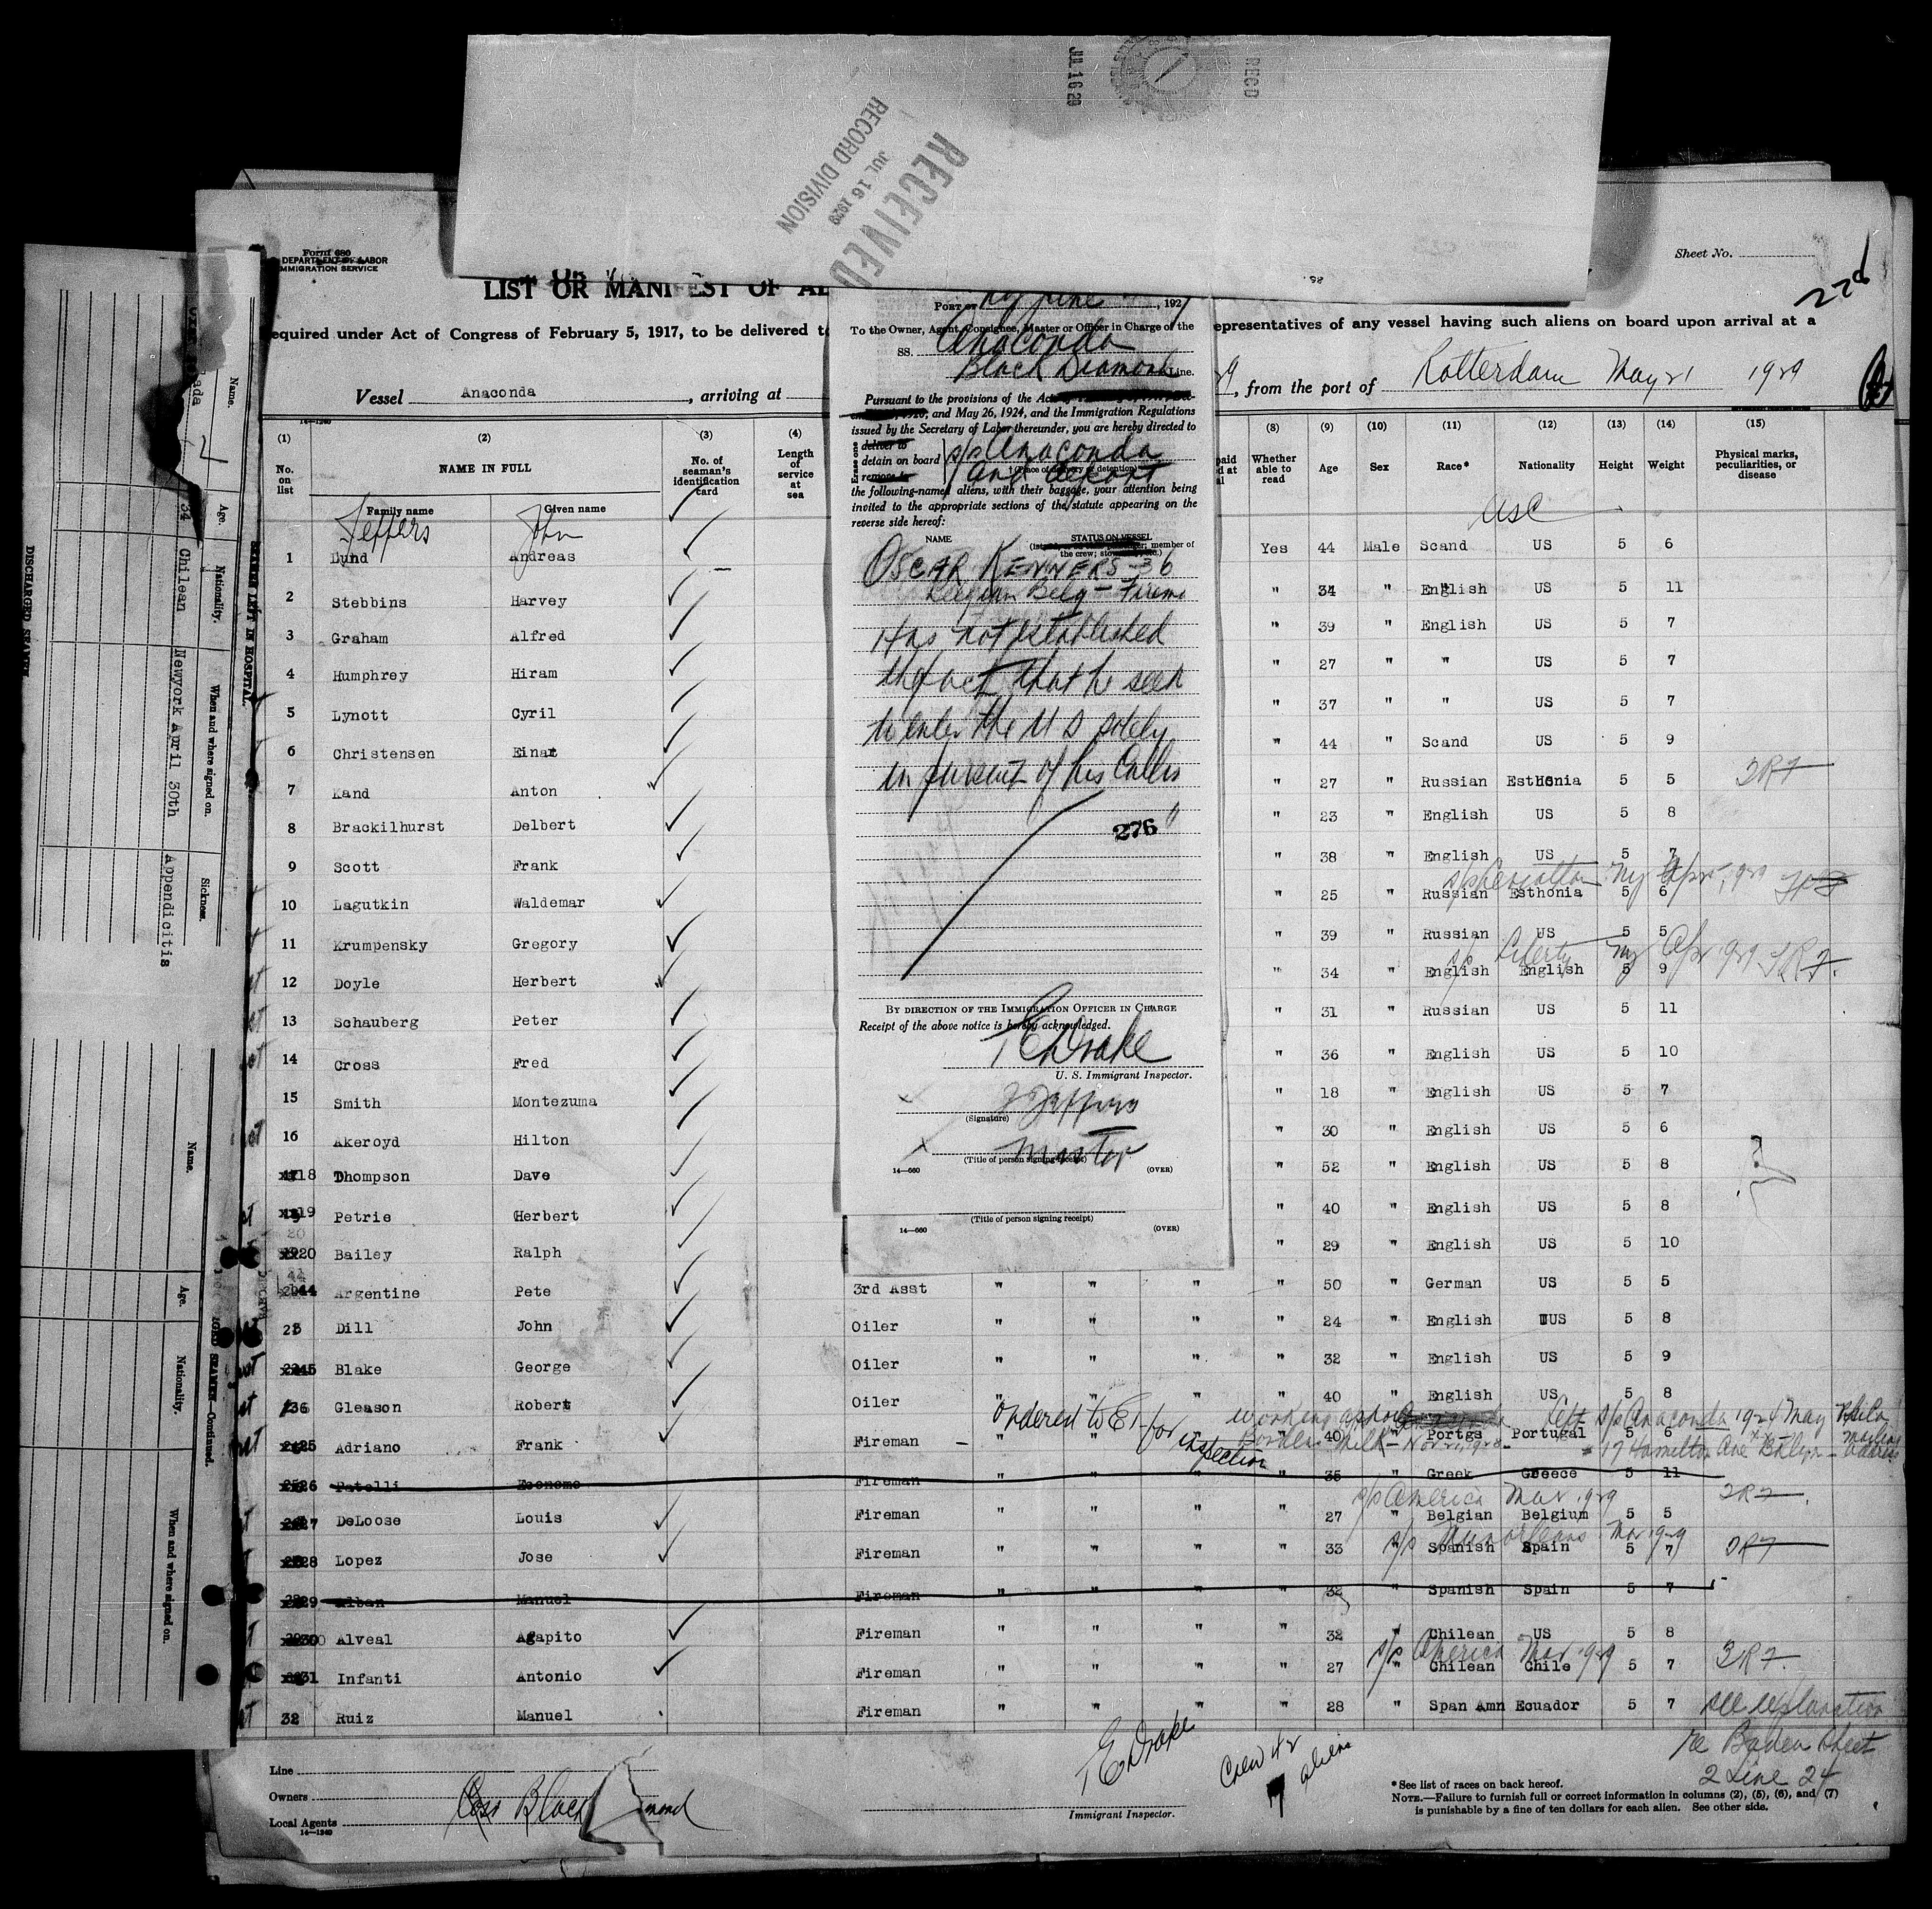 RECD
JUL 16 29
RECEIVED
JUL 16 1929
RECORD DIVISION
Form 680
DEPARTMENT OF LABOR
IMMIGRATION SERVICE
Sheet No.
LIST OR MANIFEST OF AL
equired under Act of Congress of February 5, 1917, to be delivered t
epresentatives of any vessel having such aliens on board upon arrival at a
Vessel Anaconda, arriving at
, from the port of Rotterdam May 21 1929
14—1240
(1) (2) (3) (4) (8) (9) (10) (11) (12) (13) (14) (15)
No. on list
NAME IN FULL
Family name Given name
No. of seaman's identification card
Length of service at sea
Whether able to read
Age
Sex
Race*
Nationality
Height
Weight
Physical marks, peculiarities, or disease
Jeffers John USC
1 Lund Andreas Yes 44 Male Scand US 5 6
2 Stebbins Harvey " 34 " English US 5 11
3 Graham Alfred " 39 " English US 5 7
4 Humphrey Hiram " 27 " " US 5 7
5 Lynott Cyril " 37 " " US 5 7
6 Christensen Einar " 44 " Scand US 5 9
7 Kand Anton " 27 " Russian Esthonia 5 5
8 Brackilhurst Delbert " 23 " English US 5 8
9 Scott Frank " 38 " English US 5 7
s/s Leviathan NY Apr 1929
10 Lagutkin Waldemar " 25 " Russian Esthonia 5 6
11 Krumpensky Gregory " 39 " Russian US 5 5
s/s Liberty NY Apr 1929
12 Doyle Herbert " 34 " English English 5 9
13 Schauberg Peter " 31 " Russian US 5 11
14 Cross Fred " 36 " English US 5 10
15 Smith Montezuma " 18 " English US 5 7
16 Akeroyd Hilton " 30 " English US 5 6
18 Thompson Dave " 52 " English US 5 8
19 Petrie Herbert " 40 " English US 5 8
20 Bailey Ralph " 29 " English US 5 10
44 Argentine Pete 3rd Asst " " " " 50 " German US 5 5
23 Dill John Oiler " " " " 24 " English US 5 8
45 Blake George Oiler " " " " 32 " English US 5 9
36 Gleason Robert Oiler " " " " 40 " English US 5 8
Ordered to EI for inspection
left s/s Anaconda 1924 May
25 Adriano Frank Fireman " " " " 40 " Portgs Portugal 5 6
17 Hamilton Ave Bklyn mailing address
26 Patelli Economo Fireman " " " " 35 " Greek Greece 5 11
s/s America Mar 1929
27 DeLoose Louis Fireman " " " " 27 " Belgian Belgium 5 5
Mar 1929
28 Lopez Jose Fireman " " " " 33 " Spanish Spain 5 7
29 Alban Manuel Fireman " " " " 32 " Spanish Spain 5 7
30 Alveal Agapito Fireman " " " " 32 " Chilean US 5 8
s/s America Mar 1929
31 Infanti Antonio Fireman " " " " 27 " Chilean Chile 5 7
32 Ruiz Manuel Fireman " " " " 28 " Span Amn Ecuador 5 7
see explanation
re Baden Sheet
2 Line 24
Line
Owners
Local Agents
14—1240
Black mond
T E Drake
Immigrant Inspector.
Crew 42
7 aliens
*See list of races on back hereof.
NOTE.—Failure to furnish full or correct information in columns (2), (5), (6), and (7)
is punishable by a fine of ten dollars for each alien. See other side.
PORT OF NY June , 192
To the Owner, Agent, Consignee, Master or Officer in Charge of the
SS. Anaconda
Black Diamond Line.
Pursuant to the provisions of the Acts
and May 26, 1924, and the Immigration Regulations
issued by the Secretary of Labor thereunder, you are hereby directed to
Erase one
deliver to
detain on board
remove to
s/s Anaconda
†(Place of delivery or detention)
and deport
the following-named aliens, with their baggage, your attention being
invited to the appropriate sections of the statute appearing on the
reverse side hereof:
NAME STATUS ON VESSEL
member of the crew;
OSCAR KENNERS - 36
Belgian Belg - Firemn
Has not established
the fact that he seek
to enter the U S solely
in pursuit of his Callin
276
BY DIRECTION OF THE IMMIGRATION OFFICER IN CHARGE
Receipt of the above notice is hereby acknowledged.
T E Drake
U. S. Immigrant Inspector.
J Jeffers
(Signature)
Master
(Title of person signing receipt)
14—660 (OVER)
(Title of person signing receipt)
14—660 (OVER)
Name. Age. Nationality. When and where signed on. Sickness.
34 Chilean Newyork April 30th Appendicitis
SEAMEN LEFT IN HOSPITAL.
DISCHARGED SEAMEN
Name. Age. Nationality. When and where signed on.
SEAMEN—Continued.